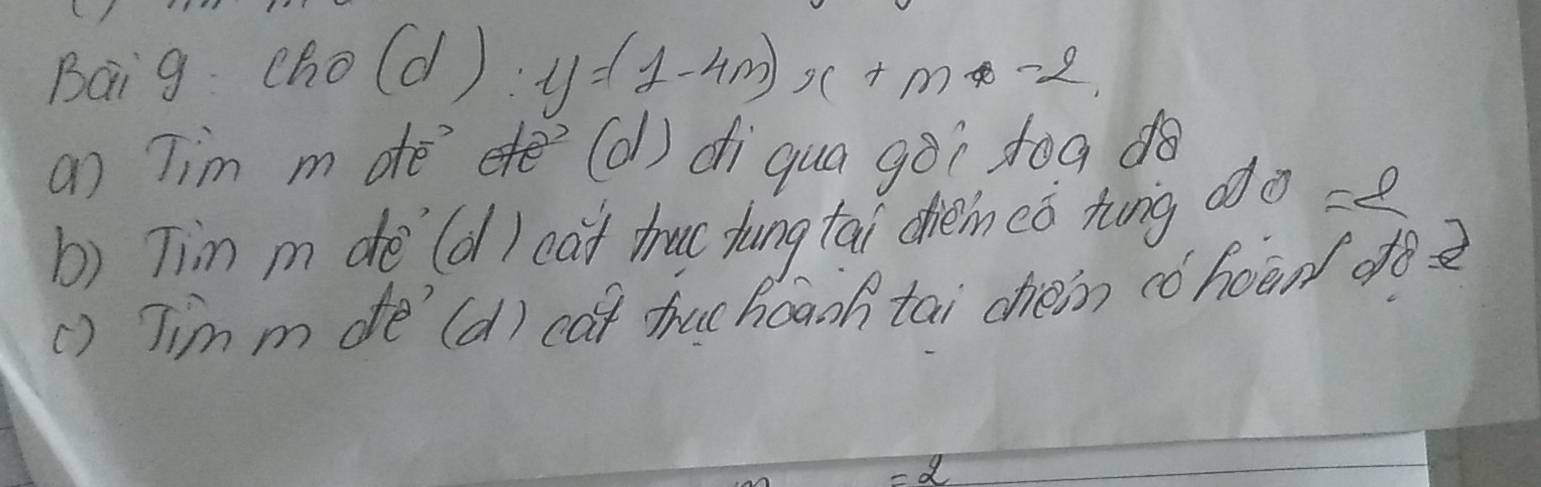 Bài 9. Cho (d): y=(1-4m)x + m -2.
a) Tìm m để (d) đi qua gối tọa độ
b) Tìm m để (d) cắt trục tung tại điểm có tung độ =2
c) Tìm m để (d) cắt trục hoành tại điểm có hoành độ =2
=2